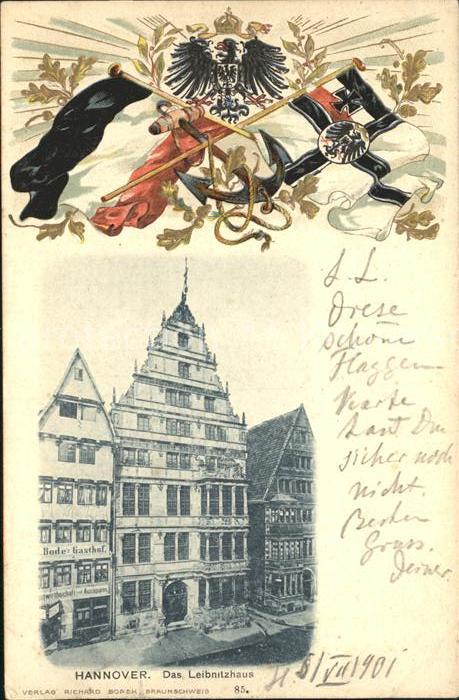 L. L.
Diese
schöne
Flaggen-
Karte
hast Du
sicher noch
nicht.
Besten
Gruss.
Deiner
Bode's Gasthof.
HANNOVER. Das Leibnitzhaus
VERLAG RICHARD BOREK, BRAUNSCHWEIG 85.
5/VII 1901